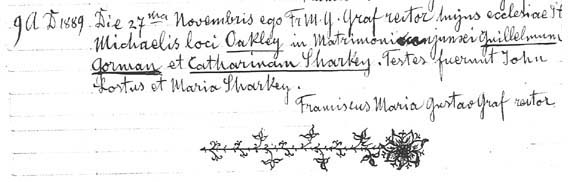 9 A D 1889. Die 27ma Novembris ego Fr M. G. Graf rector hujus ecclesiae St
Michaelis loci Oakley in Matrimoni conjunxi Guillelmum
Gorman et Catharinam Sharkey. Testes fuerunt John
Lostus et Maria Sharkey.
Franciscus Maria Gustav Graf rector